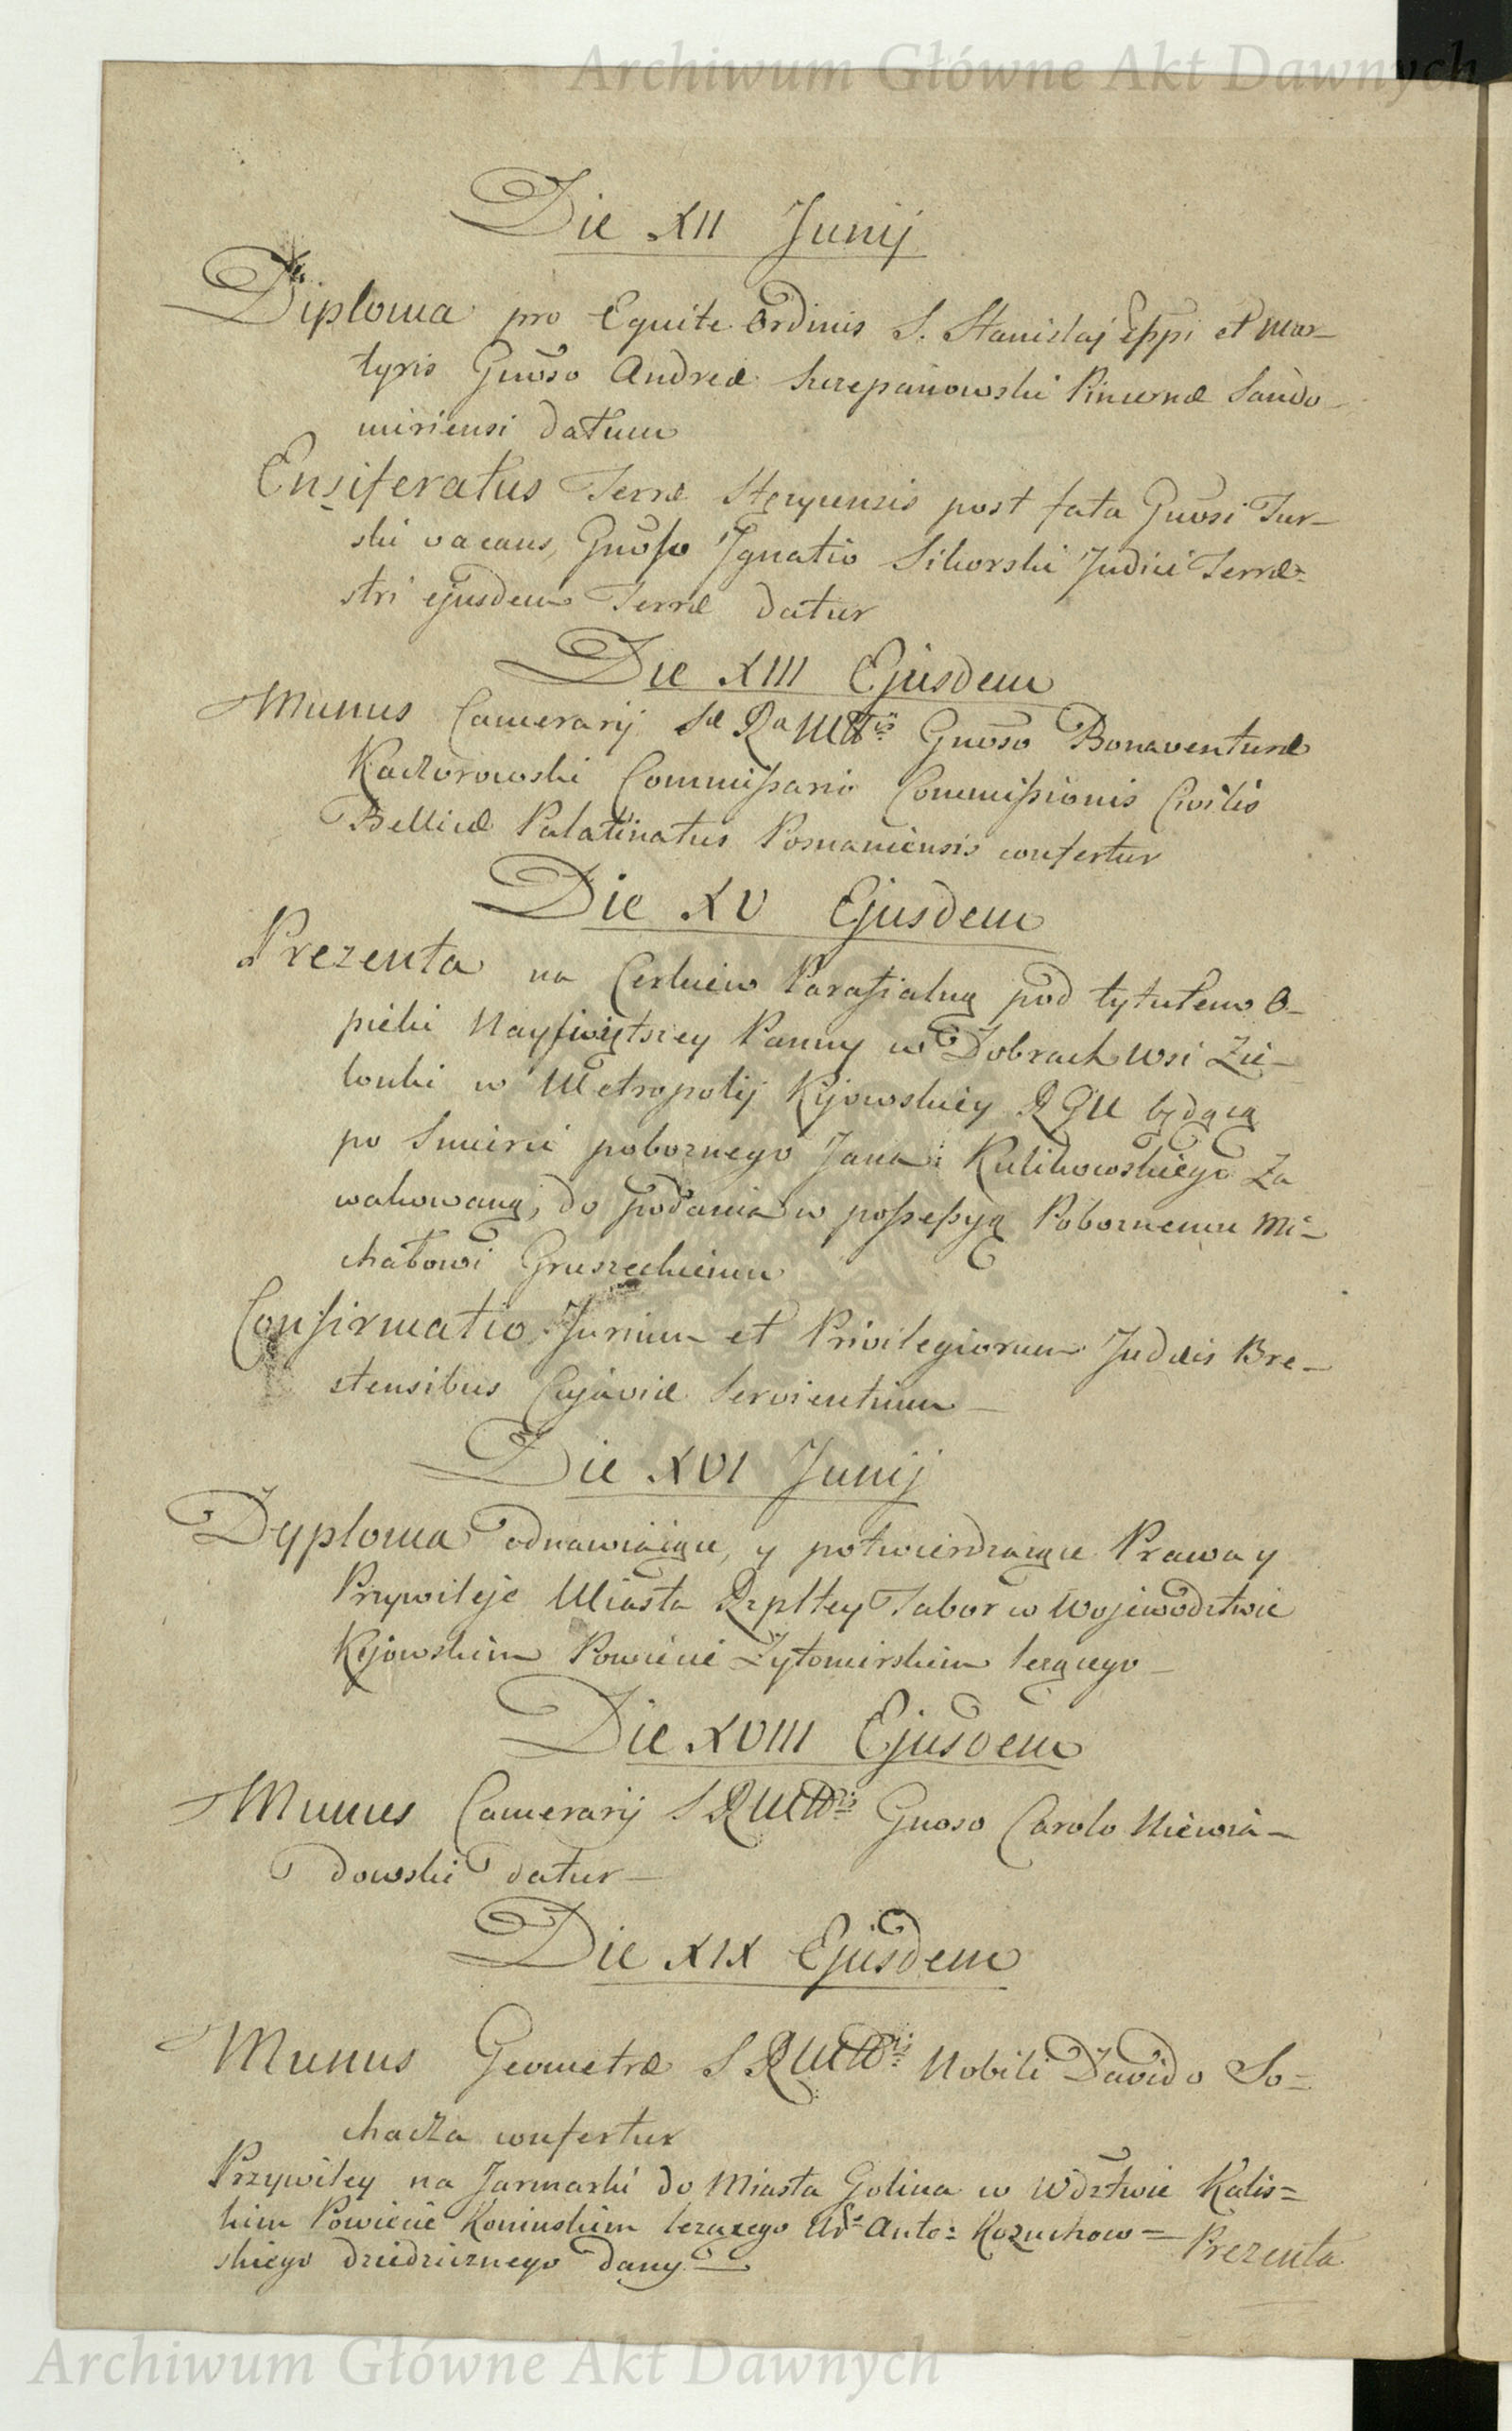 Archiwum Główne Akt Dawnych
Die XII Junij
Diploma pro Equite Ordinis S. Stanislaj Eppi et Mar-
tyris Gnoso Andreæ Szczepanowski Pincernæ Sando-
miriensi datum
Ensiferatus Terræ Stezycensis post fata Gnosi Tur-
ski vacans, Gnoso Ignatio Sikorski Judici Terre-
stri ejusdem Terræ datur
Die XIII Ejusdem
Munus Camerarij Sæ Ra Mttis Gnoso Bonaventuræ
Kaczorowski Commissario Commissionis Civilis
Bellicæ Palatinatus Posnaniensis confertur
Die XV Ejusdem
Prezenta na Cerkiew Parafialną pod tytułem O-
pieki Nayswiętszey Panny w Dobrach Wsi Zie-
lonki w Metropolij Kijowskiey RGU będącą
po Smierci pobożnego Jana Kulikowskiego za
wakowaną, do podania w possessyą Pobożnemu Mi-
chałowi Gruszeckiemu
Confirmatio Jurium et Privilegiorum Judæis Bre-
stensibus Cujaviæ Servientium
Die XVI Junij
Dyploma odnawiaiące, y potwierdzaiące Prawa y
Przywileje Miasta Rzpltey Tabor w Wojewodztwie
Kijowskim Powiecie Żytomirskim leżącego
Die XVIII Ejusdem
Munus Camerarij S R Mttis Gnoso Carolo Niewia-
dowski datur
Die XIX Ejusdem
Munus Geometræ S R Mttis Nobili Davido So=
chacza confertur
Przywiley na Jarmarki do Miasta Golina w Wdztwie Kalis=
kim Powiecie Koninskim leżącego Ur Anto: Kożuchow=
skiego dziedzicznego dany
Prezenta
Archiwum Główne Akt Dawnych